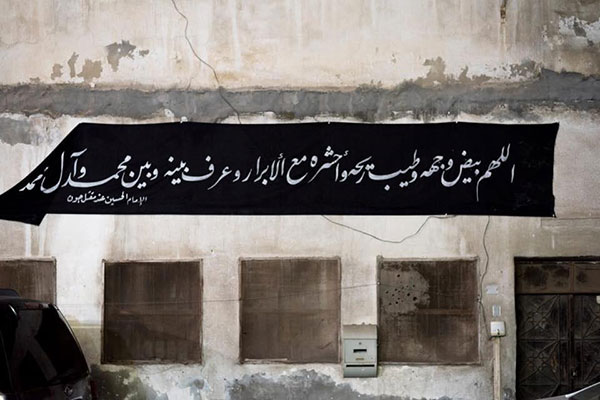 اللهم بيض وجهه وطيب ريحه وأحشره مع ألأبرار وعرف بينه وبين محمد وآل محمد
الإمام الحسين عند مقتل جون